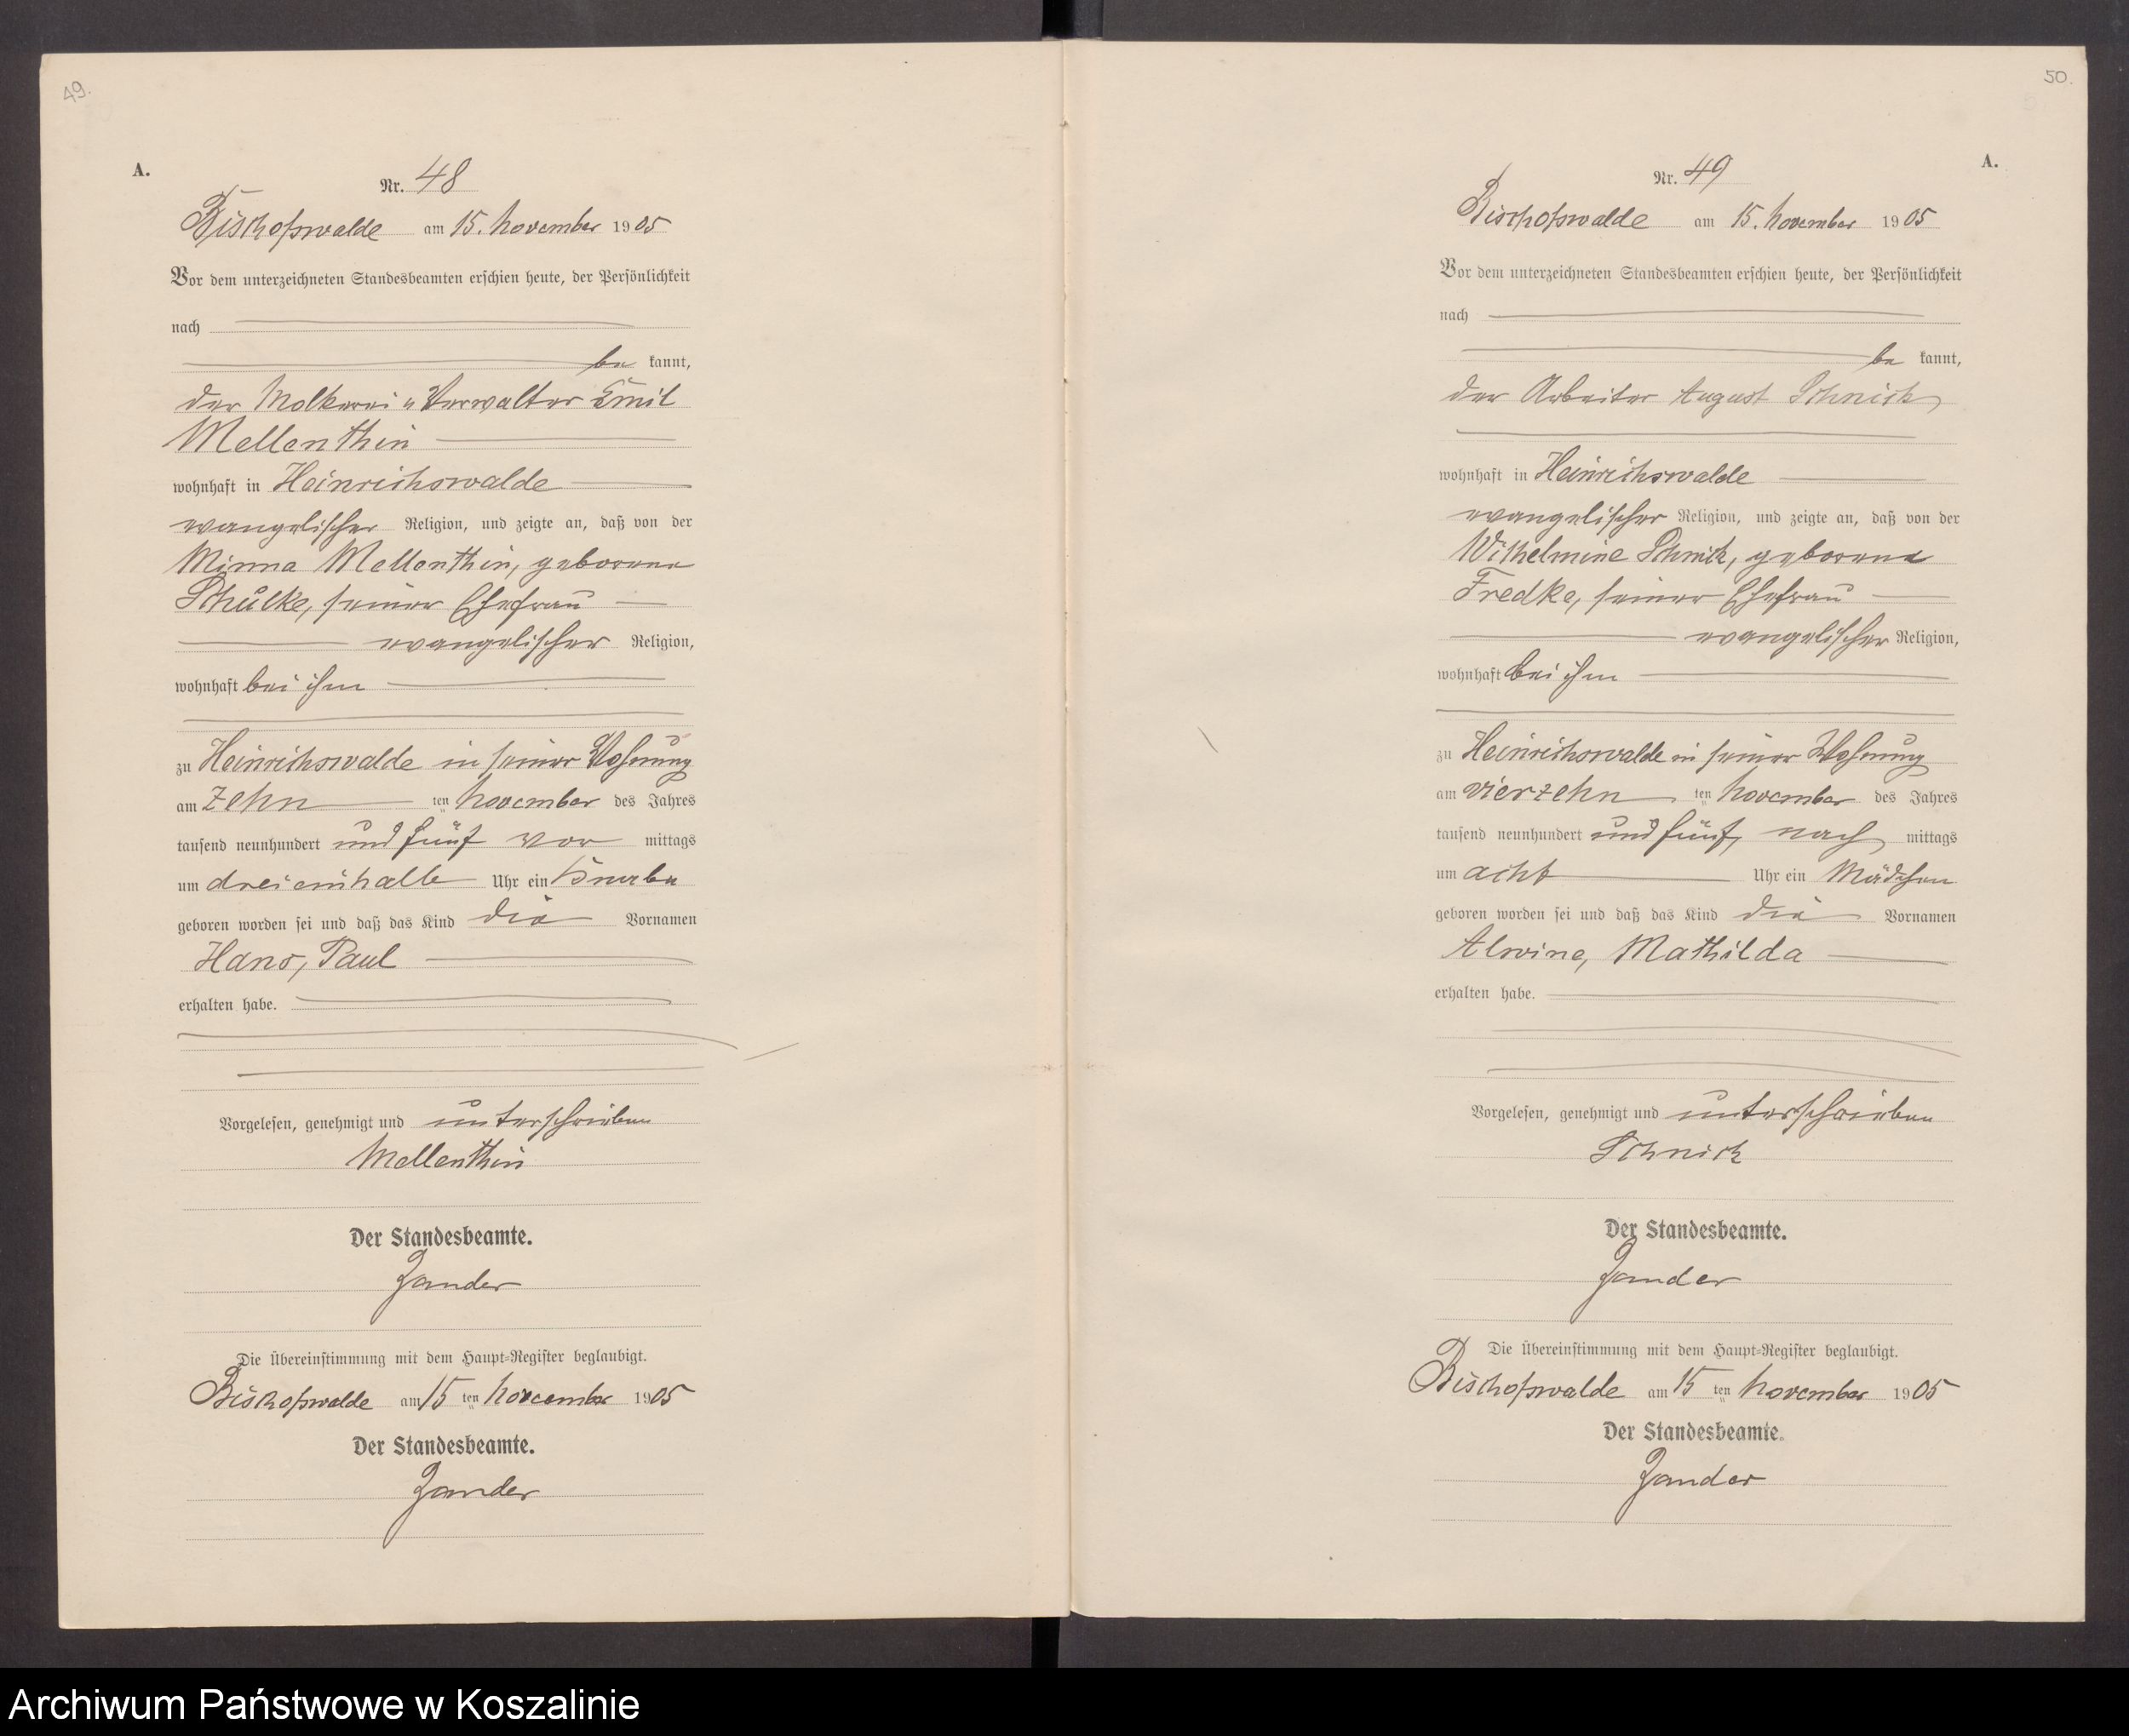 49.
A.
Nr. 48
Bischofswalde am 15. November 1905
Vor dem unterzeichneten Standesbeamten erschien heute, der Persönlichkeit
nach
be kannt,
der Molkerei Verwalter Emil
Mellenthin
wohnhaft in Heinrichswalde
evangelischer Religion, und zeigte an, daß von der
Minna Mellenthin, geborene
Schülke, seiner Ehefrau
evangelischer Religion,
wohnhaft bei ihm
zu Heinrichswalde in seiner Wohnung
am zehn ten November des Jahres
tausend neunhundert und fünf vor mittags
um dreieinhalb Uhr ein Knabe
geboren worden sei und daß das Kind die Vornamen
Hans, Paul
erhalten habe.
Vorgelesen, genehmigt und unterschrieben
Mellenthin
Der Standesbeamte.
Zander
Die Übereinstimmung mit dem Haupt-Register beglaubigt.
Bischofswalde am 15 ten November 1905
Der Standesbeamte.
Zander
50.
A.
Nr. 49
Bischofswalde am 15. November 1905
Vor dem unterzeichneten Standesbeamten erschien heute, der Persönlichkeit
nach
be kannt,
der Arbeiter August Schnick
wohnhaft in Heinrichswalde
evangelischer Religion, und zeigte an, daß von der
Wilhelmine Schnick, geborene
Fredke, seiner Ehefrau
evangelischer Religion,
wohnhaft bei ihm
zu Heinrichswalde in seiner Wohnung
am vierzehn ten November des Jahres
tausend neunhundert und fünf, nach mittags
um acht Uhr ein Mädchen
geboren worden sei und daß das Kind die Vornamen
Alwine, Mathilda
erhalten habe.
Vorgelesen, genehmigt und unterschrieben
Schnick
Der Standesbeamte.
Zander
Die Übereinstimmung mit dem Haupt-Register beglaubigt.
Bischofswalde am 15 ten November 1905
Der Standesbeamte.
Zander
Archiwum Państwowe w Koszalinie